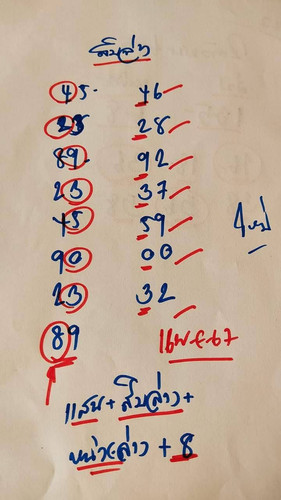 สิบล่าง
45 46
23 28
89 92
23 37
45 59
90 00
23 32
89 16 พ.ย. 67
แสน + สิบล่าง +
หน่วยล่าง + 8